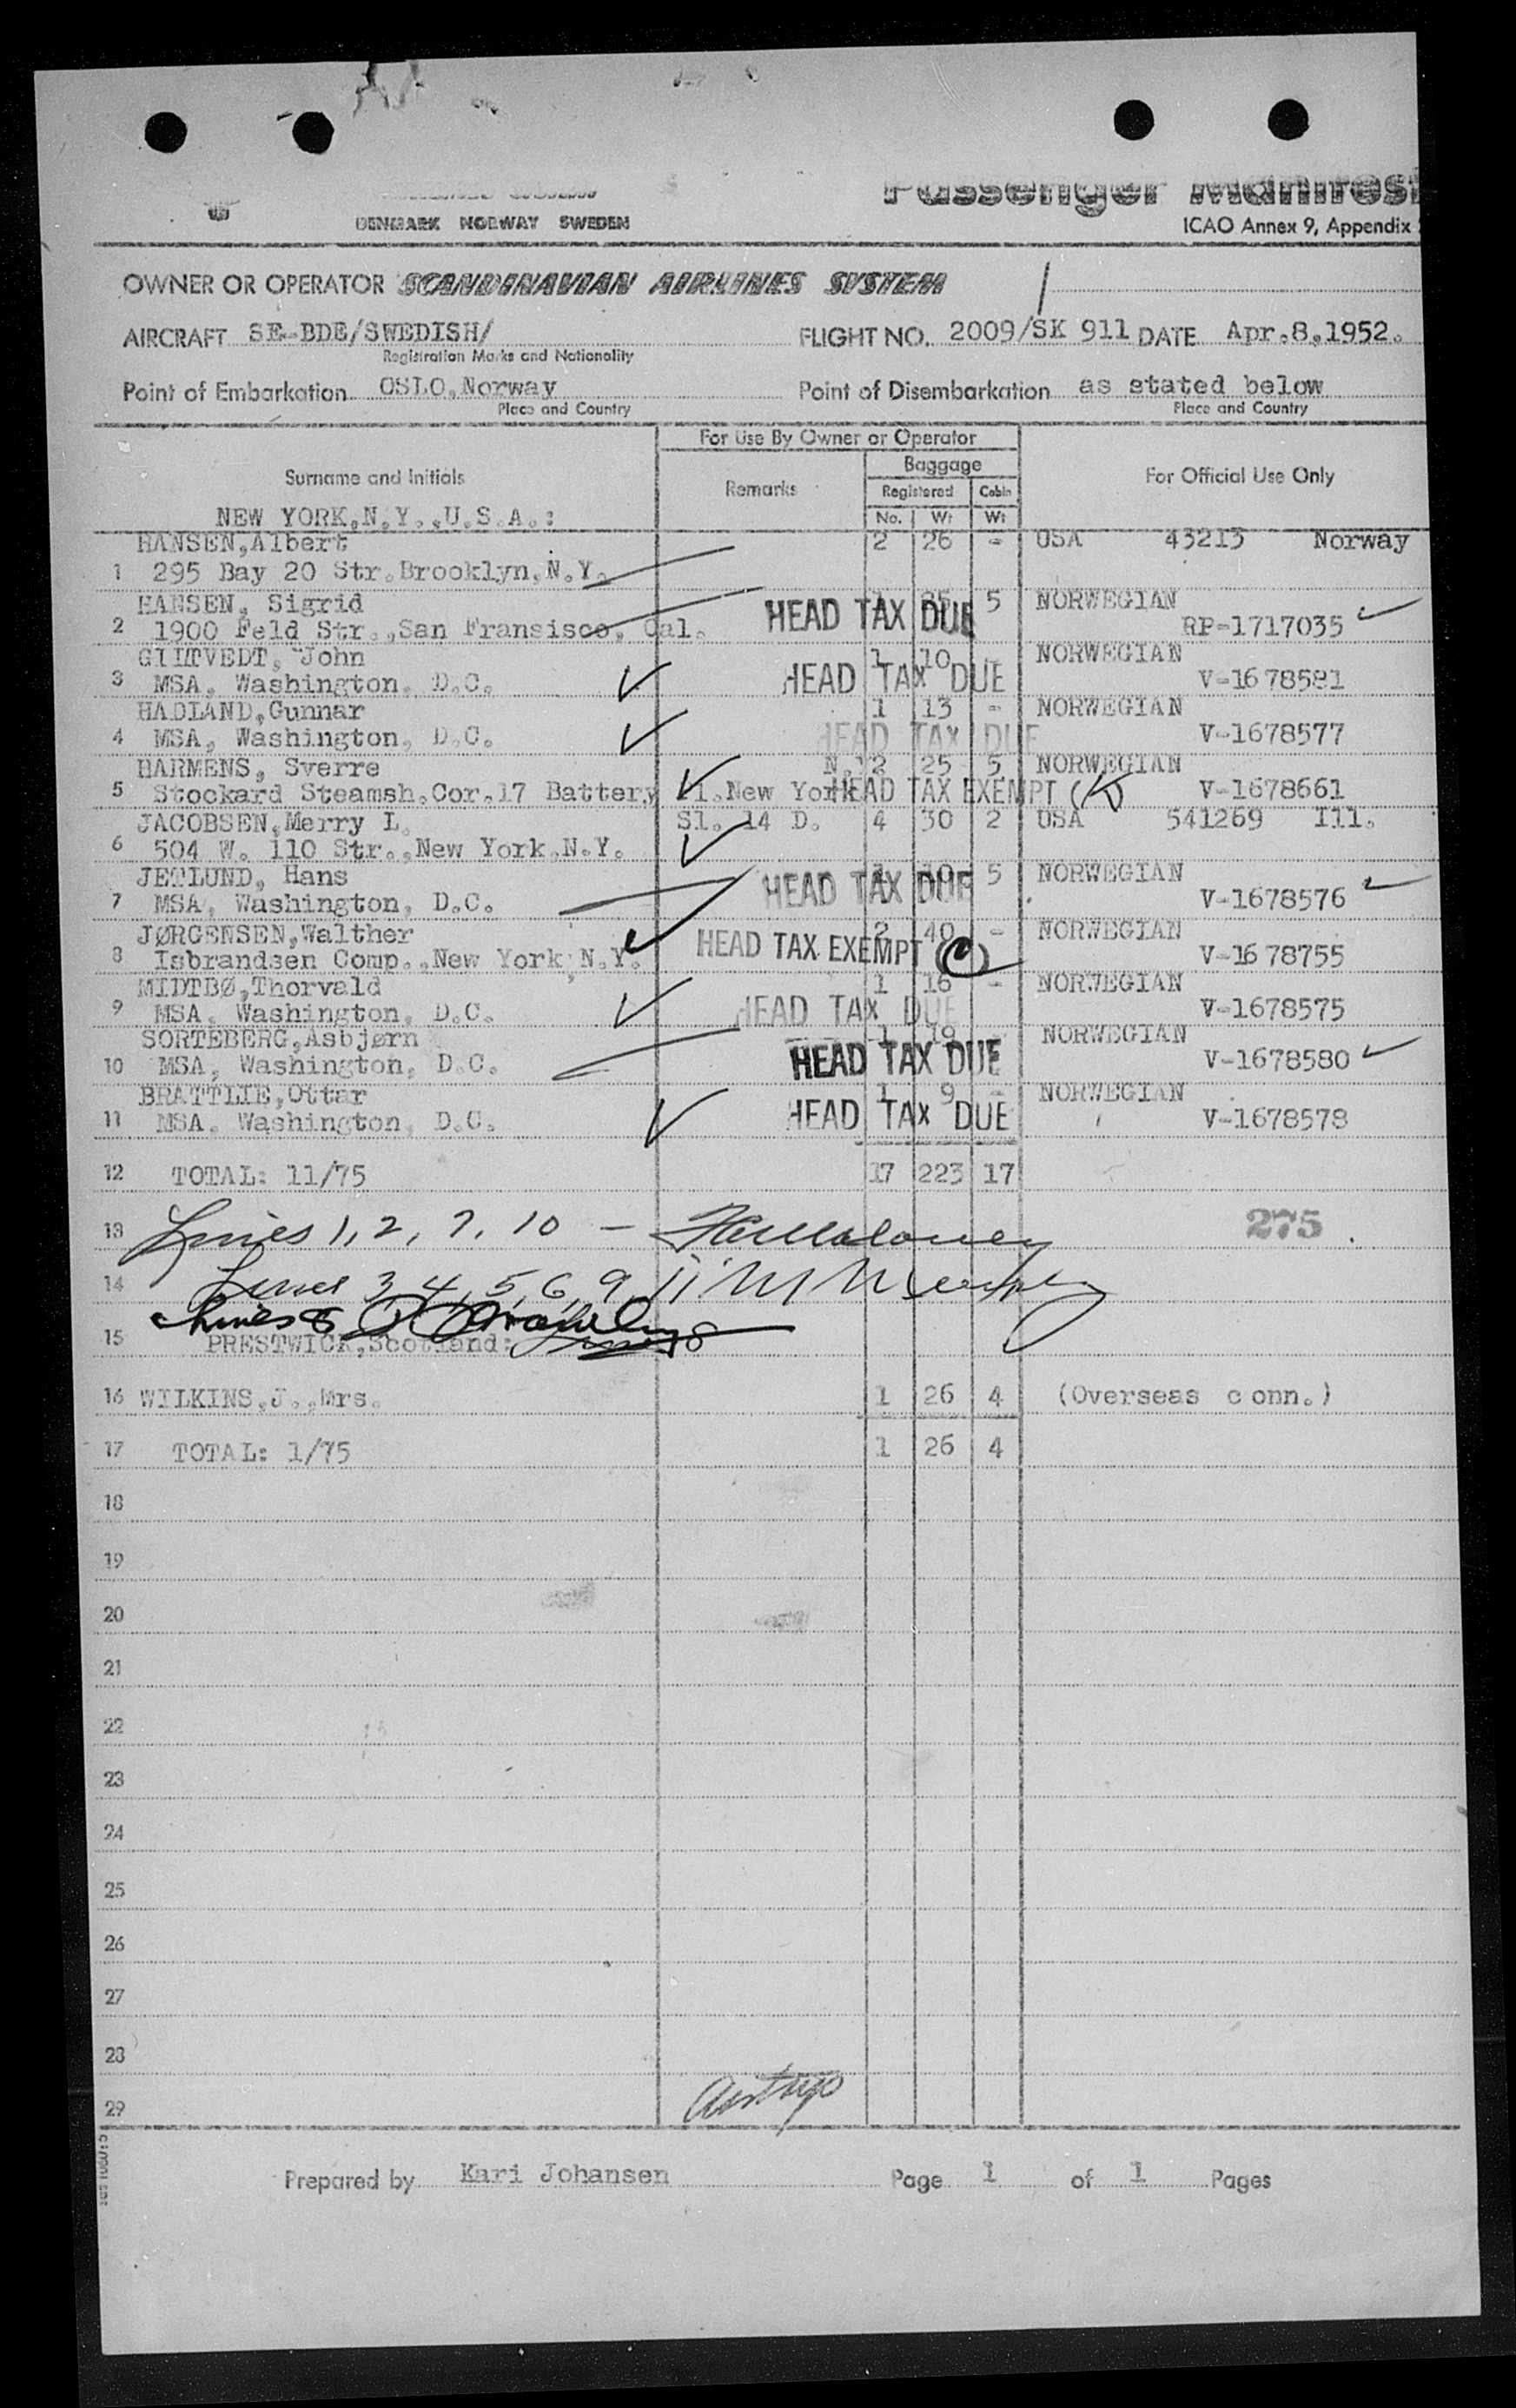 DENMARK NORWAY SWEDEN
Passenger Manifest
ICAO Annex 9, Appendix
OWNER OR OPERATOR SCANDINAVIAN AIRLINES SYSTEM
AIRCRAFT SE-BDE/SWEDISH/ FLIGHT NO. 2009/SK 911 DATE Apr.8,1952.
Registration Marks and Nationality
Point of Embarkation OSLO,Norway Point of Disembarkation as stated below
Place and Country Place and Country
For Use By Owner or Operator
Surname and Initials Remarks Baggage For Official Use Only
Registered Cabin
NEW YORK,N.Y.,U.S.A.: No. Wt Wt
HANSEN,Albert 2 26 - USA 43213 Norway
1 295 Bay 20 Str.Brooklyn,N.Y.
HANSEN, Sigrid HEAD TAX DUE 5 NORWEGIAN
2 1900 Feld Str.,San Fransisco, Cal. RP-1717035
GILTVEDT, John 1 10 - NORWEGIAN
3 MSA, Washington, D.C. HEAD TAX DUE V-1678581
HADLAND,Gunnar 1 13 - NORWEGIAN
4 MSA, Washington, D.C. HEAD TAX DUE V-1678577
HARMENS, Sverre N. 2 25 5 NORWEGIAN
5 Stockard Steamsh.Cor.17 Battery Pl.New York HEAD TAX EXEMPT V-1678661
JACOBSEN,Merry L. Sl. 14 D. 4 30 2 USA 541269 Ill.
6 504 W. 110 Str.,New York,N.Y.
JETLUND, Hans HEAD TAX DUE 5 NORWEGIAN
7 MSA, Washington, D.C. V-1678576
JØRGENSEN,Walther 2 40 - NORWEGIAN
8 Isbrandsen Comp.,New York,N.Y. HEAD TAX EXEMPT (C) V-1678755
MIDTBØ,Thorvald 1 16 - NORWEGIAN
9 MSA, Washington, D.C. HEAD TAX DUE V-1678575
SORTEBERG,Asbjørn 1 19 - NORWEGIAN
10 MSA, Washington, D.C. HEAD TAX DUE V-1678580
BRATTLIE,Ottar 1 9 - NORWEGIAN
11 MSA. Washington, D.C. HEAD TAX DUE V-1678578
12 TOTAL: 11/75 17 223 17
13 Lines 1, 2, 7, 10 - 275
14 Lines 3, 4, 5, 6, 9, 11
Lines 8
15 PRESTWICK,Scotland:
16 WILKINS,J.,Mrs. 1 26 4 (Overseas conn.)
17 TOTAL: 1/75 1 26 4
18
19
20
21
22
23
24
25
26
27
28
29
Prepared by Kari Johansen Page 1 of 1 Pages